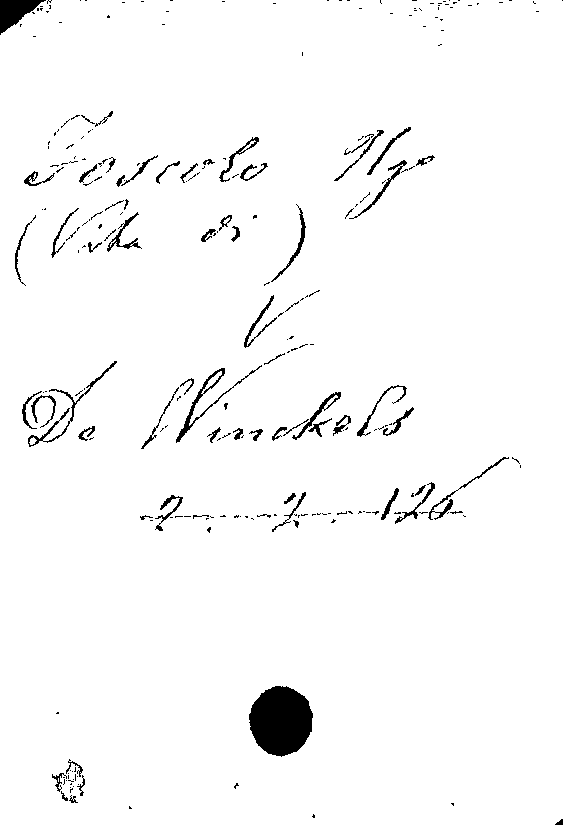 Foscolo Ugo
(Vita di)
V.
De Winckels
2. 2. 126